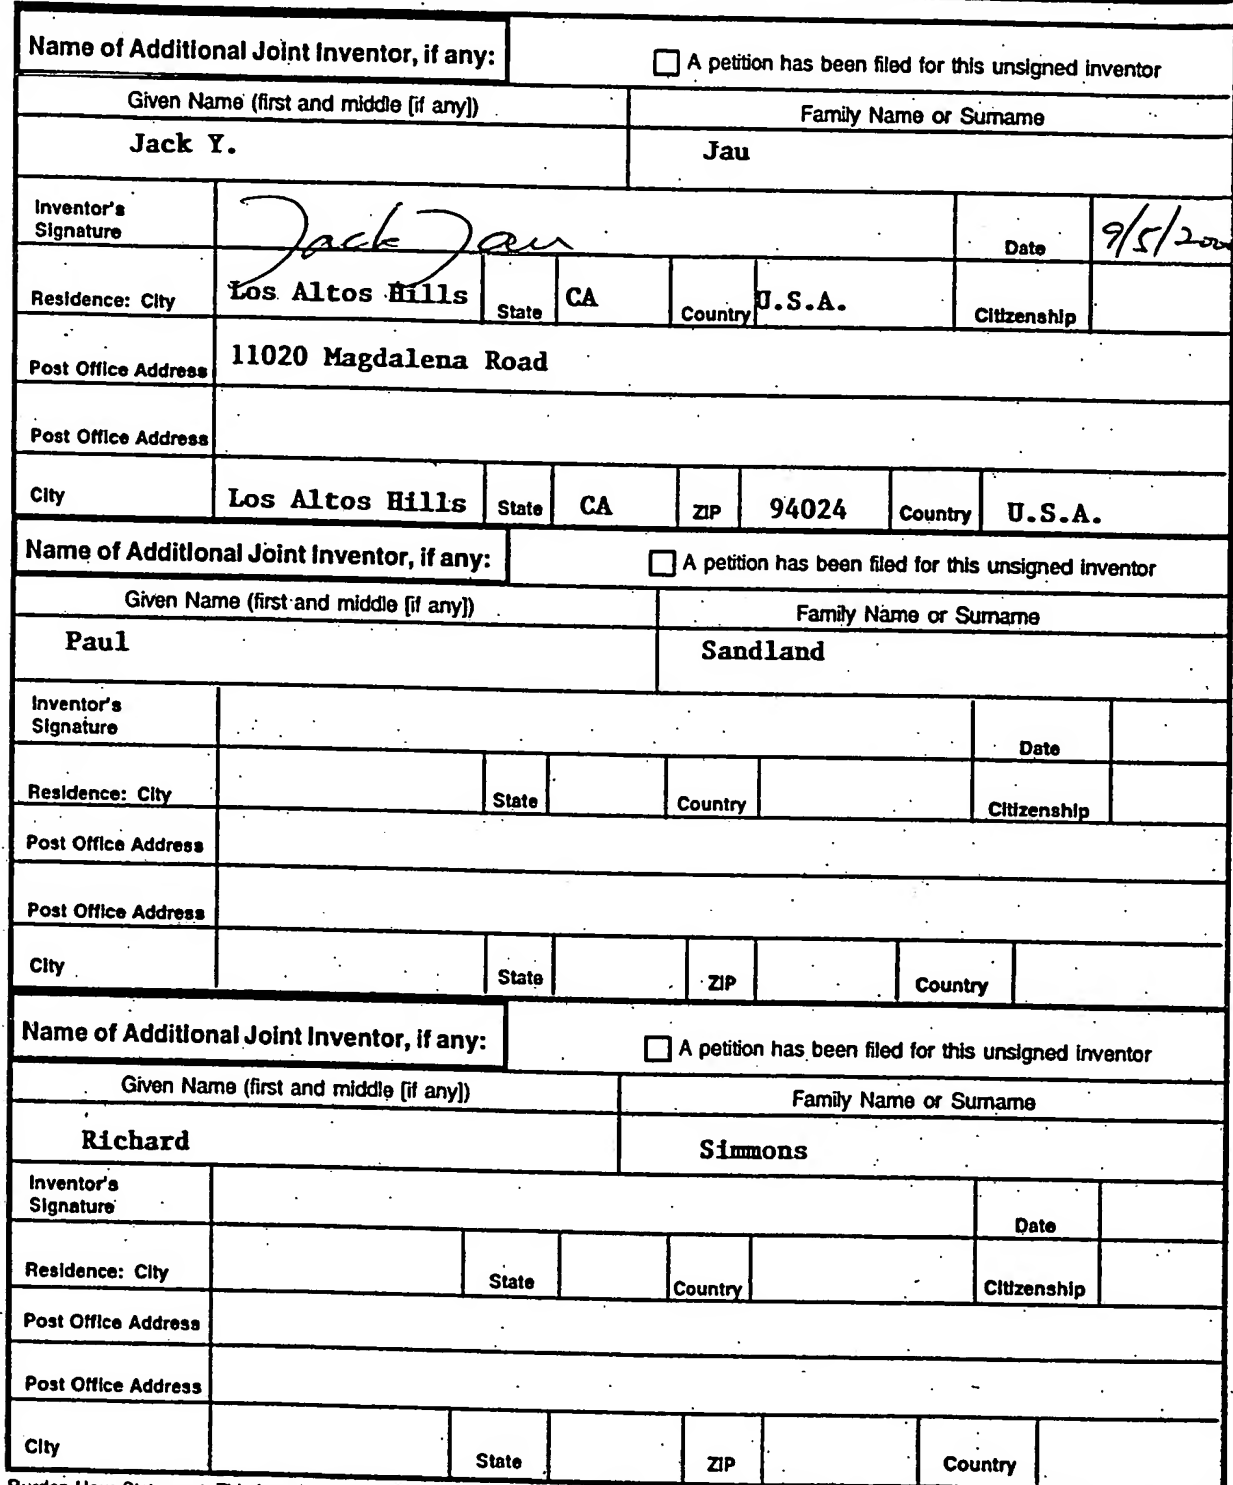 Name of Additional Joint Inventor, if any: ☐ A petition has been filed for this unsigned inventor
Given Name (first and middle [if any]) Family Name or Surname
Jack Y. Jau
Inventor's
Signature Jack Jau Date 9/5/2000
Residence: City Los Altos Hills State CA Country U.S.A. Citizenship
Post Office Address 11020 Magdalena Road
Post Office Address
City Los Altos Hills State CA ZIP 94024 Country U.S.A.
Name of Additional Joint Inventor, if any: ☐ A petition has been filed for this unsigned inventor
Given Name (first and middle [if any]) Family Name or Surname
Paul Sandland
Inventor's
Signature Date
Residence: City State Country Citizenship
Post Office Address
Post Office Address
City State ZIP Country
Name of Additional Joint Inventor, if any: ☐ A petition has been filed for this unsigned inventor
Given Name (first and middle [if any]) Family Name or Surname
Richard Simmons
Inventor's
Signature Date
Residence: City State Country Citizenship
Post Office Address
Post Office Address
City State ZIP Country